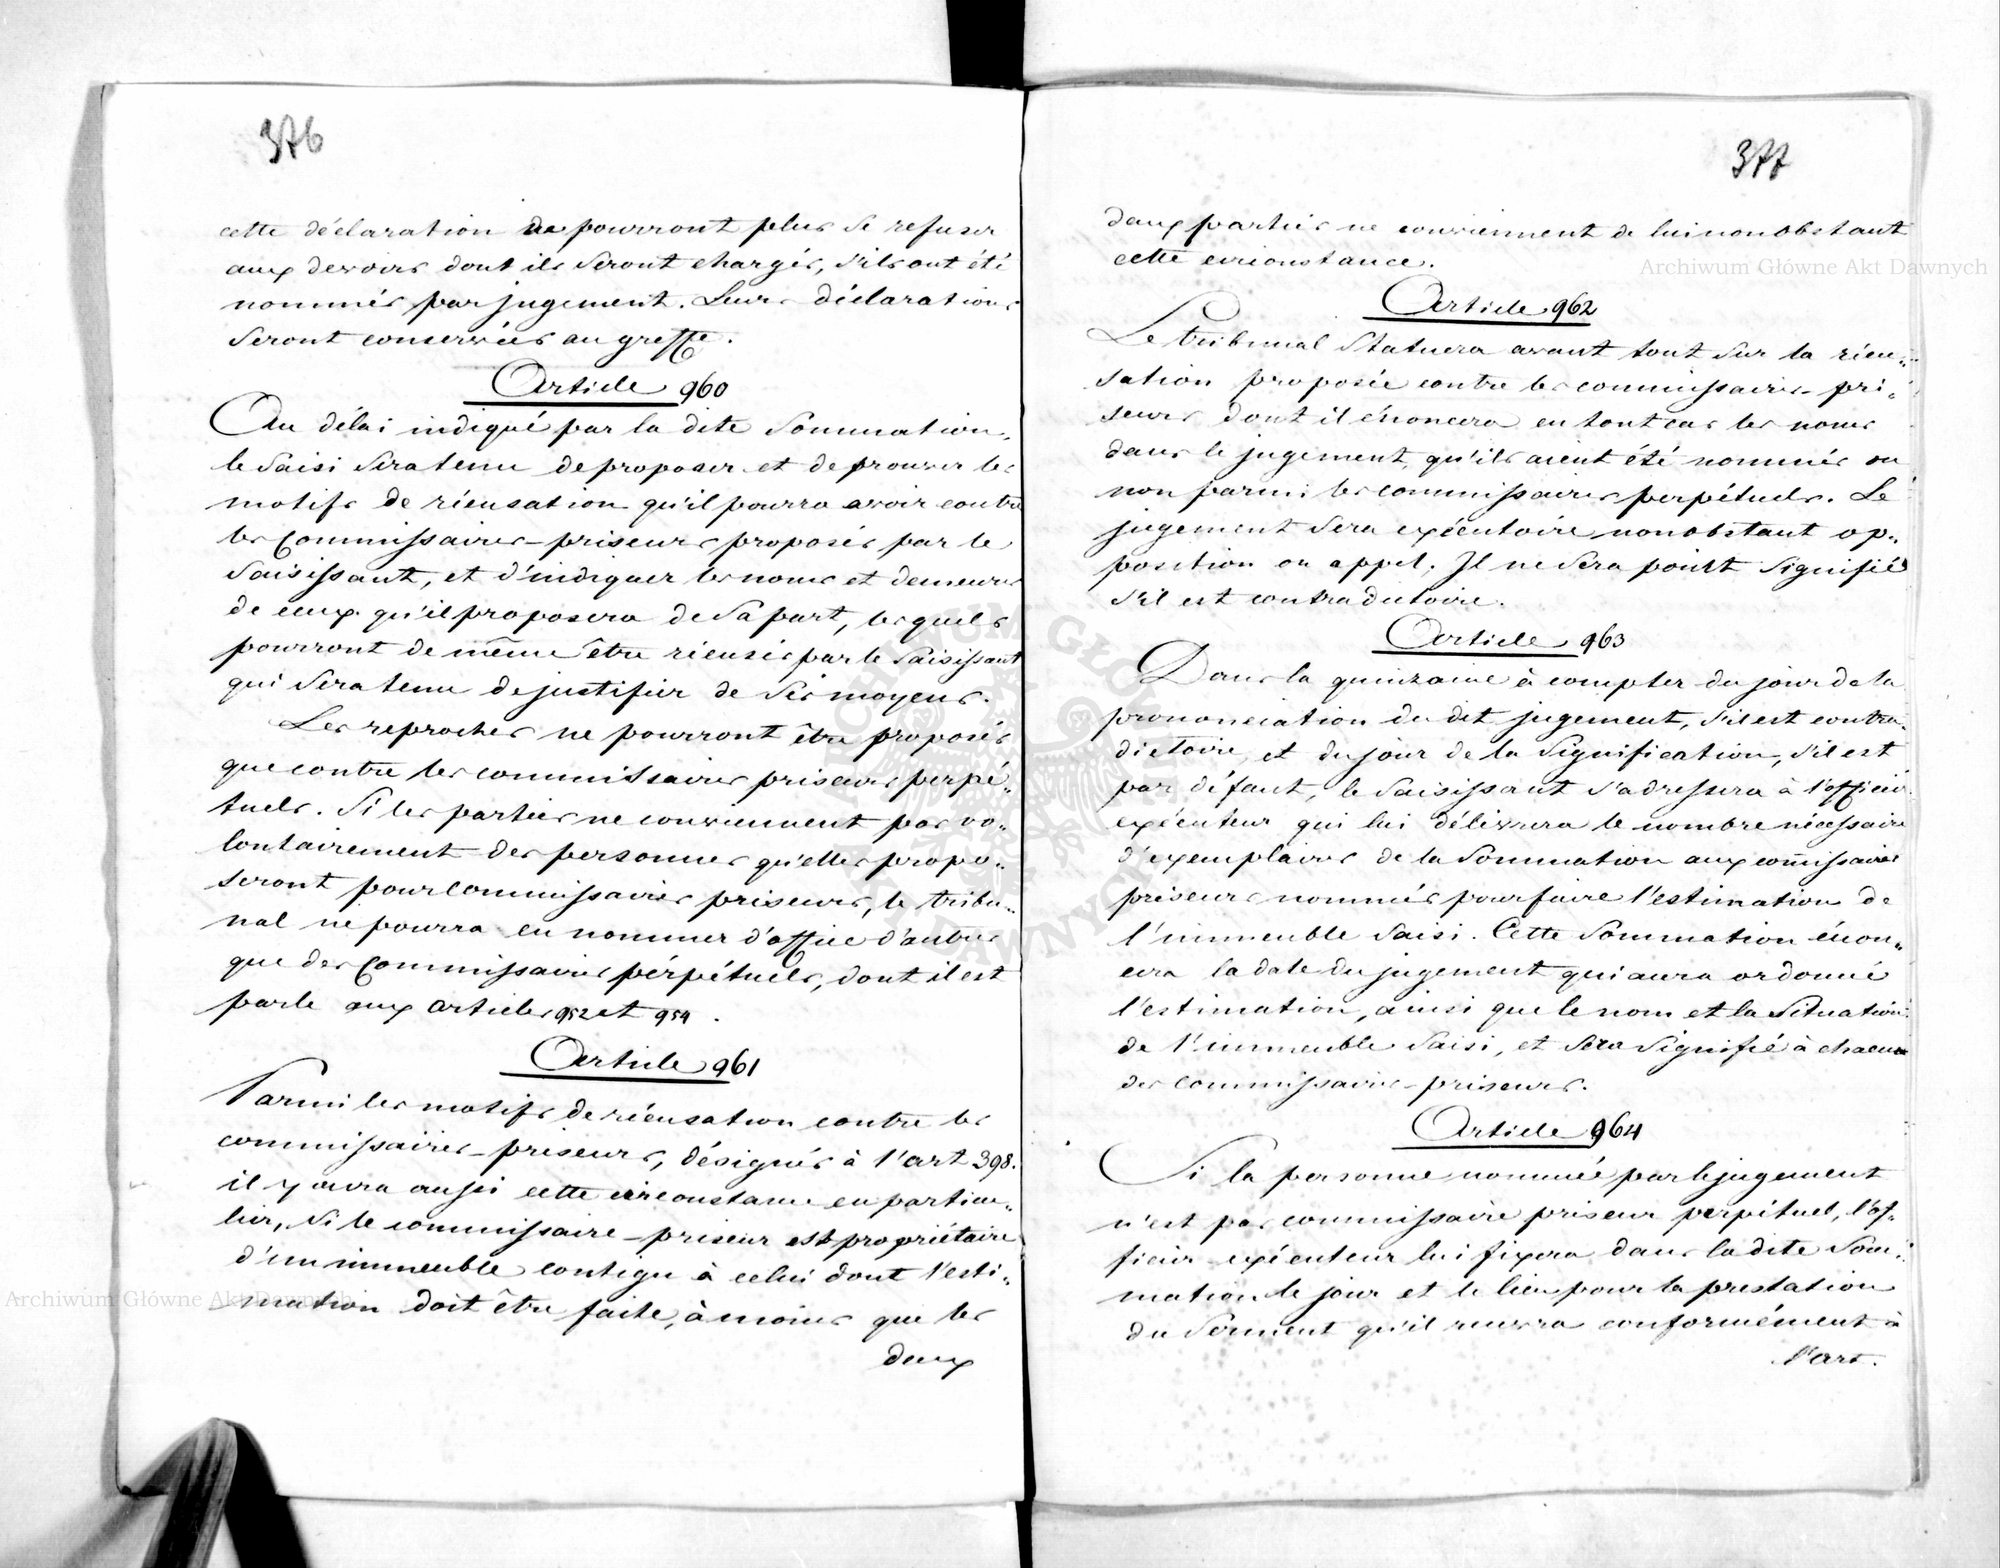 376
cette déclaration ne pourront plus se refuser
aux devoirs dont ils seront chargés, s'ils ont été
nommés par jugement. Leurs déclarations
seront conservées au greffe.
Article 960
Au délai indiqué par la dite Sommation,
le Saisi sera tenu de proposer et de prouver les
motifs de récusation qu'il pourra avoir contre
les Commissaires-priseurs proposés par le
Saisissant, et d'indiquer les noms et demeures
de ceux qu'il proposera de Sa part, lesquels
pourront de même être récusés par le Saisissant
qui Sera tenu de justifier de Ses moyens.
Les reproches ne pourront être proposés
que contre les commissaires priseurs perpé„
tuels. Si les parties ne conviennent pas vo„
lontairement des personnes qu'elles propo„
seront pour Commissaires priseurs, le tribu„
nal ne pourra en nommer d'office d'autres
que des Commissaires pérpétuels, dont il est
parlé aux articles 952 et 954.
Article 961
Parmi les motifs de récusation contre les
commissaires-priseurs, désignés à l'art 398.
il y aura aussi cette circonstance en particu„
lier, Si le commissaire-priseur est propriétaire
d'un immeuble contigu à celui dont l'esti„
mation doit être faite, à moins que les
deux
377
deux parties ne conviennent de lui nonobstant
cette circonstance.
Article 962
Le tribunal Statuera avant tout Sur la récu„
sation proposée contre les commissaires-pri„
seurs dont il énoncera en tout cas les noms
dans le jugement, qu'ils aient été nommés ou
non parmi les commissaires perpétuels. Le
jugement Sera exécutoire nonobstant op„
position ou appel; Il ne Sera point Signifié
s'il est contradictoire.
Article 963
Dans la quinzaine à compter du jour de la
prononciation du dit jugement, s'il est contra„
dictoire, et du jour de la Signification, s'il est
par défaut, le Saisissant s'adressera à l'officier
exécuteur qui lui délivrera le nombre nécessaire
d'exemplaires de la Sommation aux com̄issaires
priseurs nommés pour faire l'estimation de
l'immeuble Saisi. Cette Sommation énon„
cera la date du jugement qui aura ordonné
l'estimation, ainsi que le nom et la Situation
de l'immeuble Saisi, et Sera Signifié à chacun
des commissaires-priseurs.
Article 964
Si la personne nommée par le jugement
n'est pas commissaire priseur perpétuel, l'of„
ficier exécuteur lui fixera dans la dite Som„
mation le jour et le lieu pour la prestation
du Serment qu'il recevra conformément à
l'art.
Archiwum Główne Akt Dawnych
Archiwum Główne Akt Dawnych